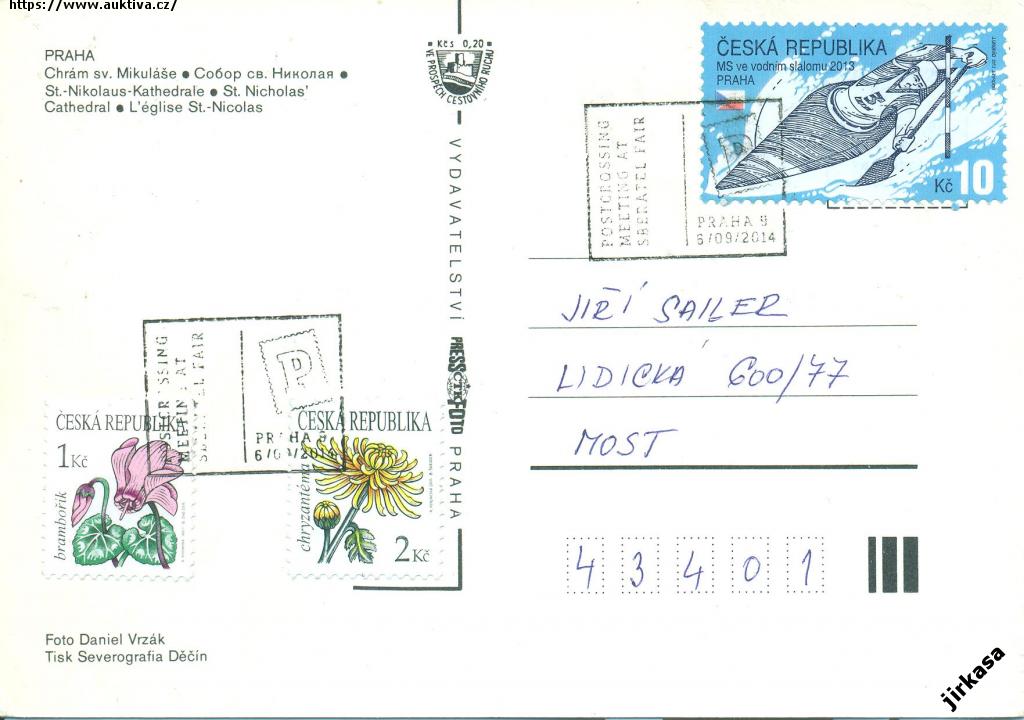 https://www.auktiva.cz/
PRAHA
Chrám sv. Mikuláše ● Собор св. Николая ●
St.-Nikolaus-Kathedrale ● St. Nicholas'
Cathedral ● L'église St.-Nicolas
Kčs 0,20
VE PROSPĚCH CESTOVNÍHO RUCHU
VYDAVATELSTVÍ PRESSFOTO PRAHA
ČTK
ČESKÁ REPUBLIKA
MS ve vodním slalomu 2013
PRAHA
Kč 10
POSTCROSSING
MEETING AT
SBERATEL FAIR
P
PRAHA 9
6/09/2014
JIŘÍ SAILER
LIDICKÁ 600/77
MOST
43401
POSTCROSSING
MEETING AT
SBERATEL FAIR
P
PRAHA 9
6/09/2014
ČESKÁ REPUBLIKA
1 Kč
brambořík
ČESKÁ REPUBLIKA
chryzantéma
2 Kč
Foto Daniel Vrzák
Tisk Severografia Děčín
jirkasa